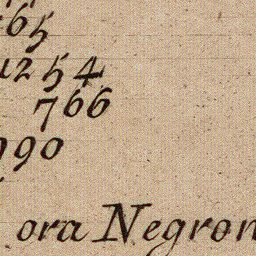 765
1254
766
990
ora Negron